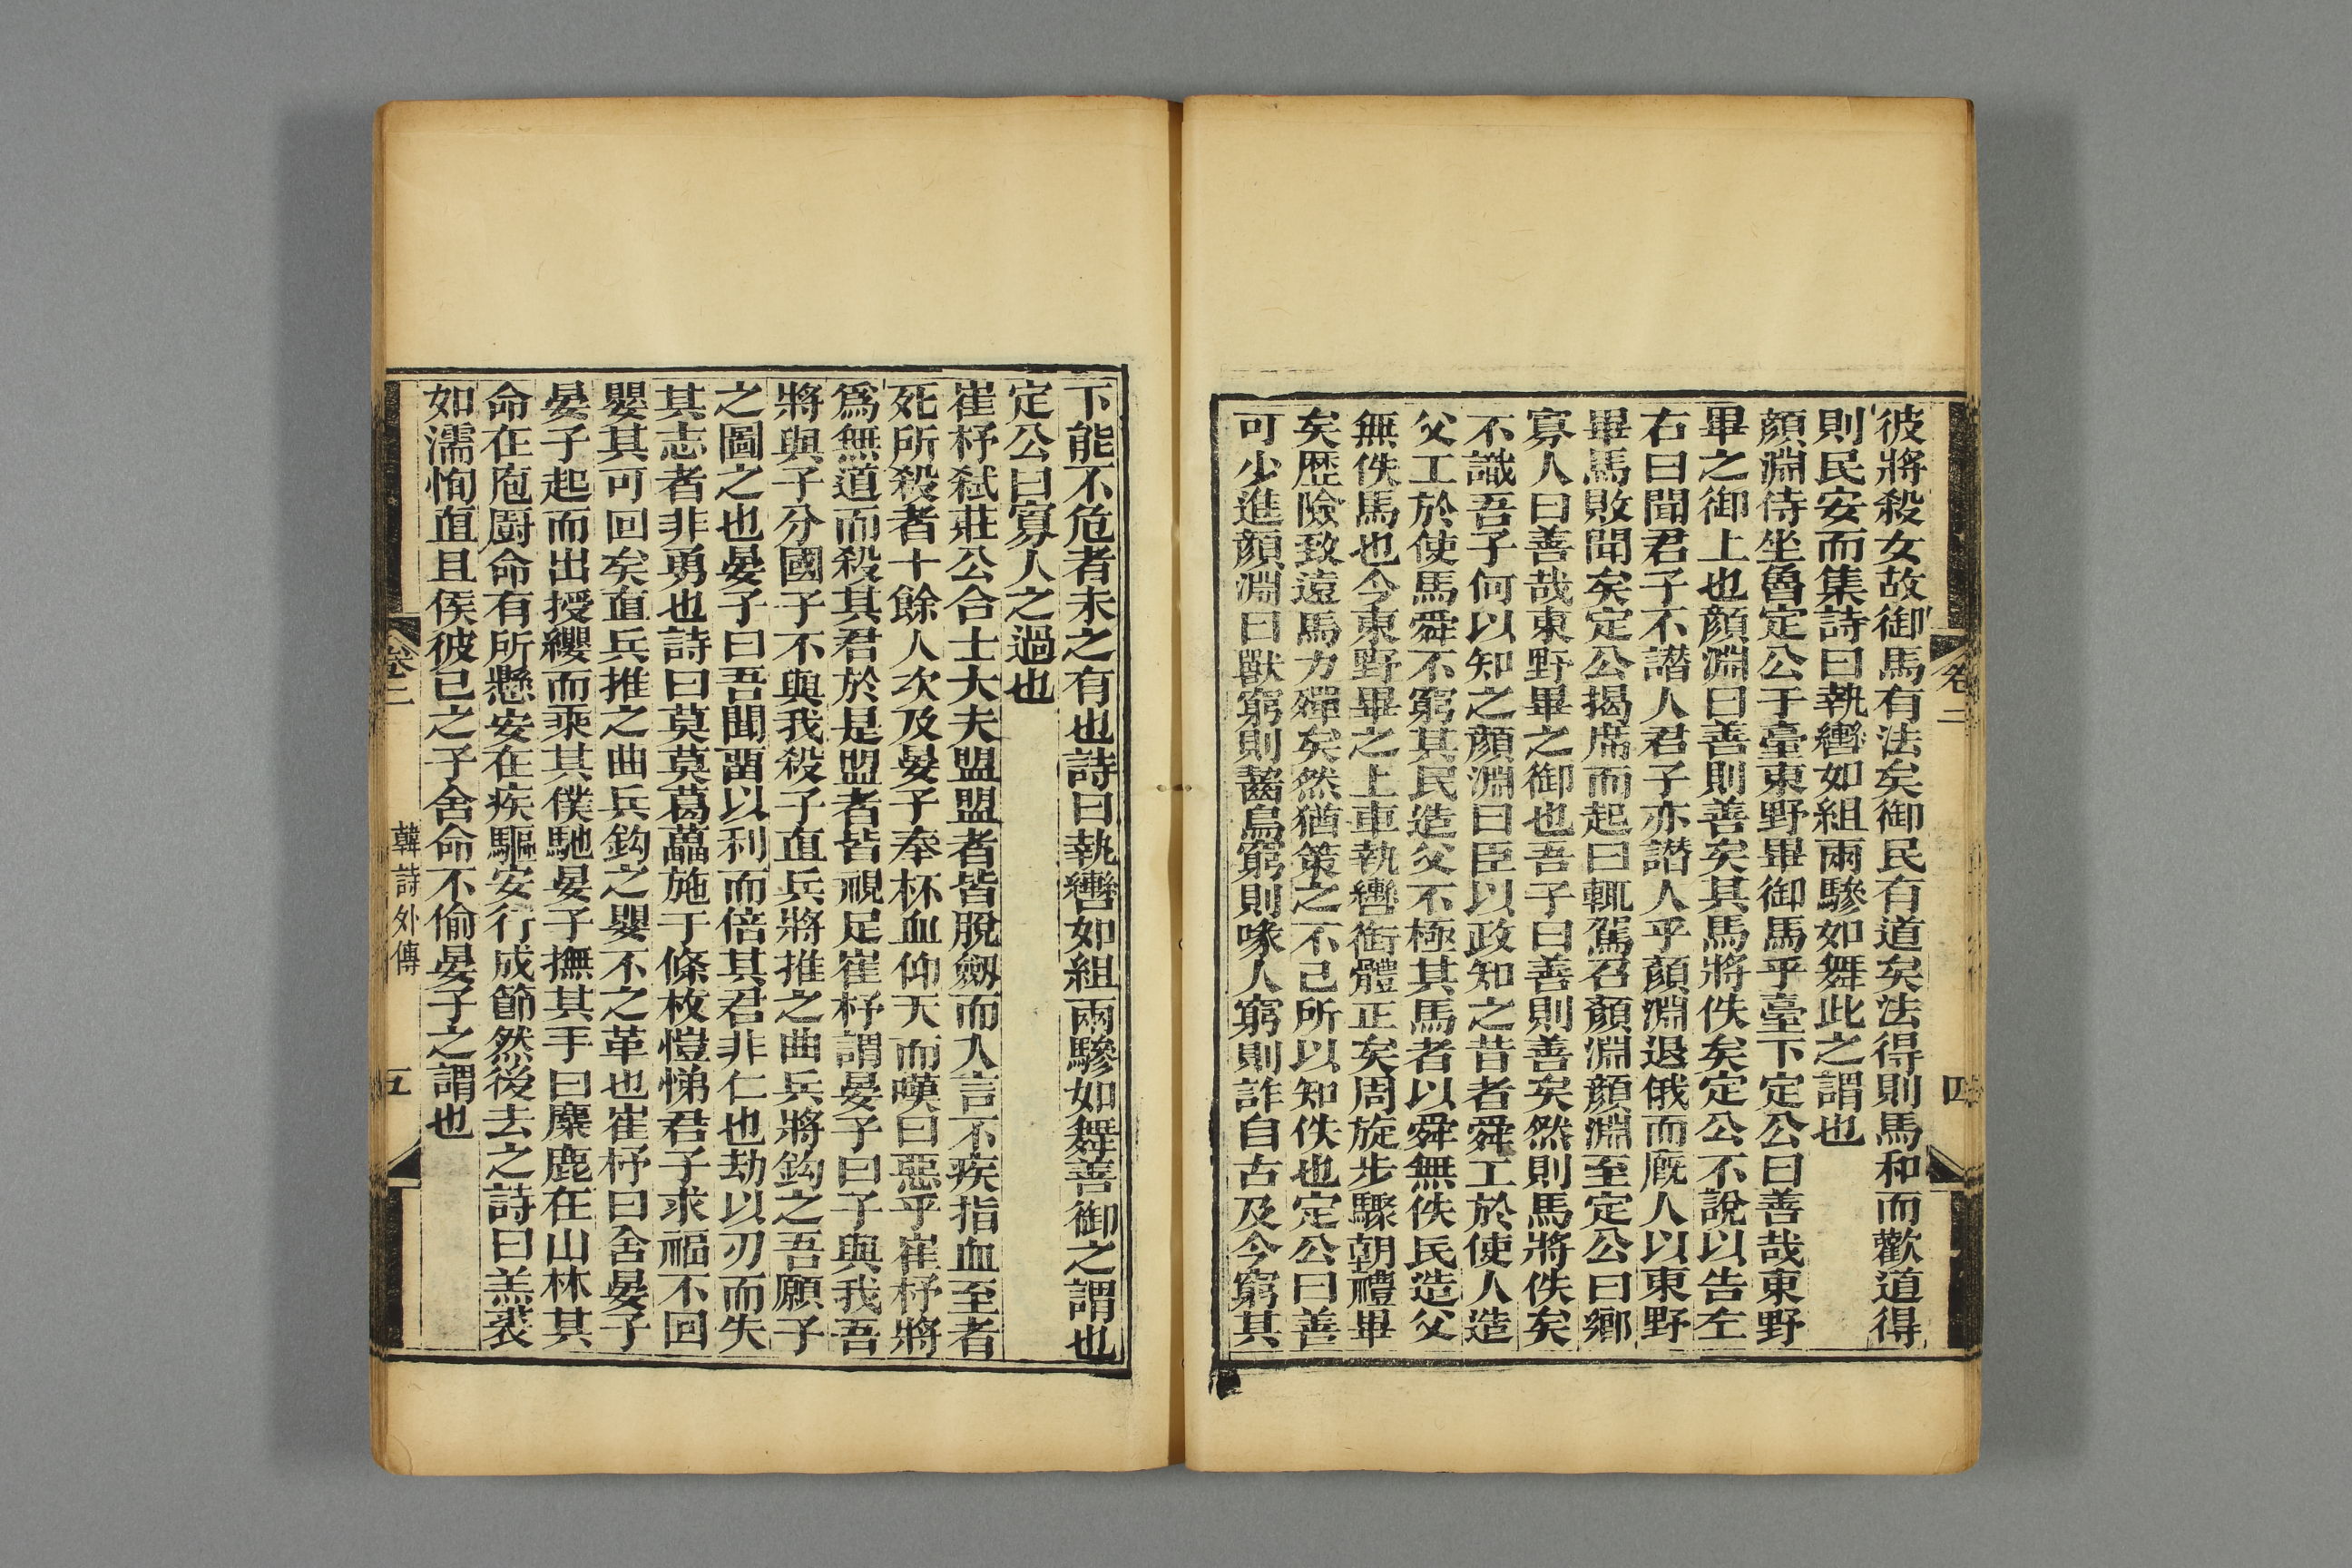 卷二
四
彼將殺女故御馬有法矣御民有道矣法得則馬和而歡道得
則民安而集詩曰執轡如組兩驂如舞此之謂也
顏淵侍坐魯定公于臺東野畢御馬乎臺下定公曰善哉東野
畢之御上也顏淵曰善則善矣其馬將佚矣定公不說以告左
右曰聞君子不譖人君子亦譖人乎顏淵退俄而厩人以東野
畢馬敗聞矣定公揭席而起曰輒駕召顏淵顏淵至定公曰鄉
寡人曰善哉東野畢之御也吾子曰善則善矣然則馬將佚矣
不識吾子何以知之顏淵曰臣以政知之昔者舜工於使人造
父工於使馬舜不窮其民造父不極其馬者以舜無佚民造父
無佚馬也今東野畢之上車執轡銜體正矣周旋步驟朝禮畢
矣歷險致遠馬力殫矣然猶策之不已所以知佚也定公曰善
可少進顏淵曰獸窮則齧鳥窮則喙人窮則詐自古及今窮其
下能不危者未之有也詩曰執轡如組兩驂如舞善御之謂也
定公曰寡人之過也
崔杼弒莊公合士大夫盟盟者皆脫劔而入言不疾指血至者
死所殺者十餘人次及晏子奉杯血仰天而嘆曰惡乎崔杼將
爲無道而殺其君於是盟者皆視足崔杼謂晏子曰子與我吾
將與子分國子不與我殺子直兵將推之曲兵將鈎之吾願子
之圖之也晏子曰吾聞畱以利而倍其君非仁也劫以刃而失
其志者非勇也詩曰莫莫葛藟施于條枚愷悌君子求福不回
嬰其可回矣直兵推之曲兵鈎之嬰不之革也崔杼曰舍晏子
晏子起而出授纓而乘其僕馳晏子撫其手曰麋鹿在山林其
命在庖厨命有所懸安在疾驅安行成節然後去之詩曰羔裘
如濡恂直且侯彼已之子舍命不偷晏子之謂也
卷二
韓詩外傳
五